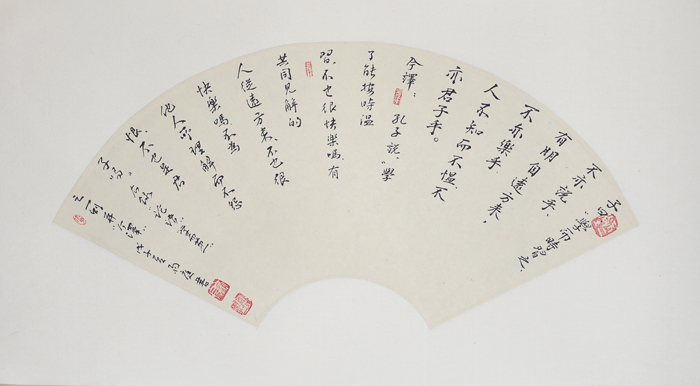 子曰：“學而時習之，
不亦説乎，
有朋自遠方來，
不亦樂乎，
人不知而不愠，不
亦君子乎。
今譯：
孔子説，“學
了能按時温
習，不也很快樂嗎，有
共同見解的
人從遠方來，不也很
快樂嗎，不為
他人所理解而不怨
恨，不也是君
子嗎。”